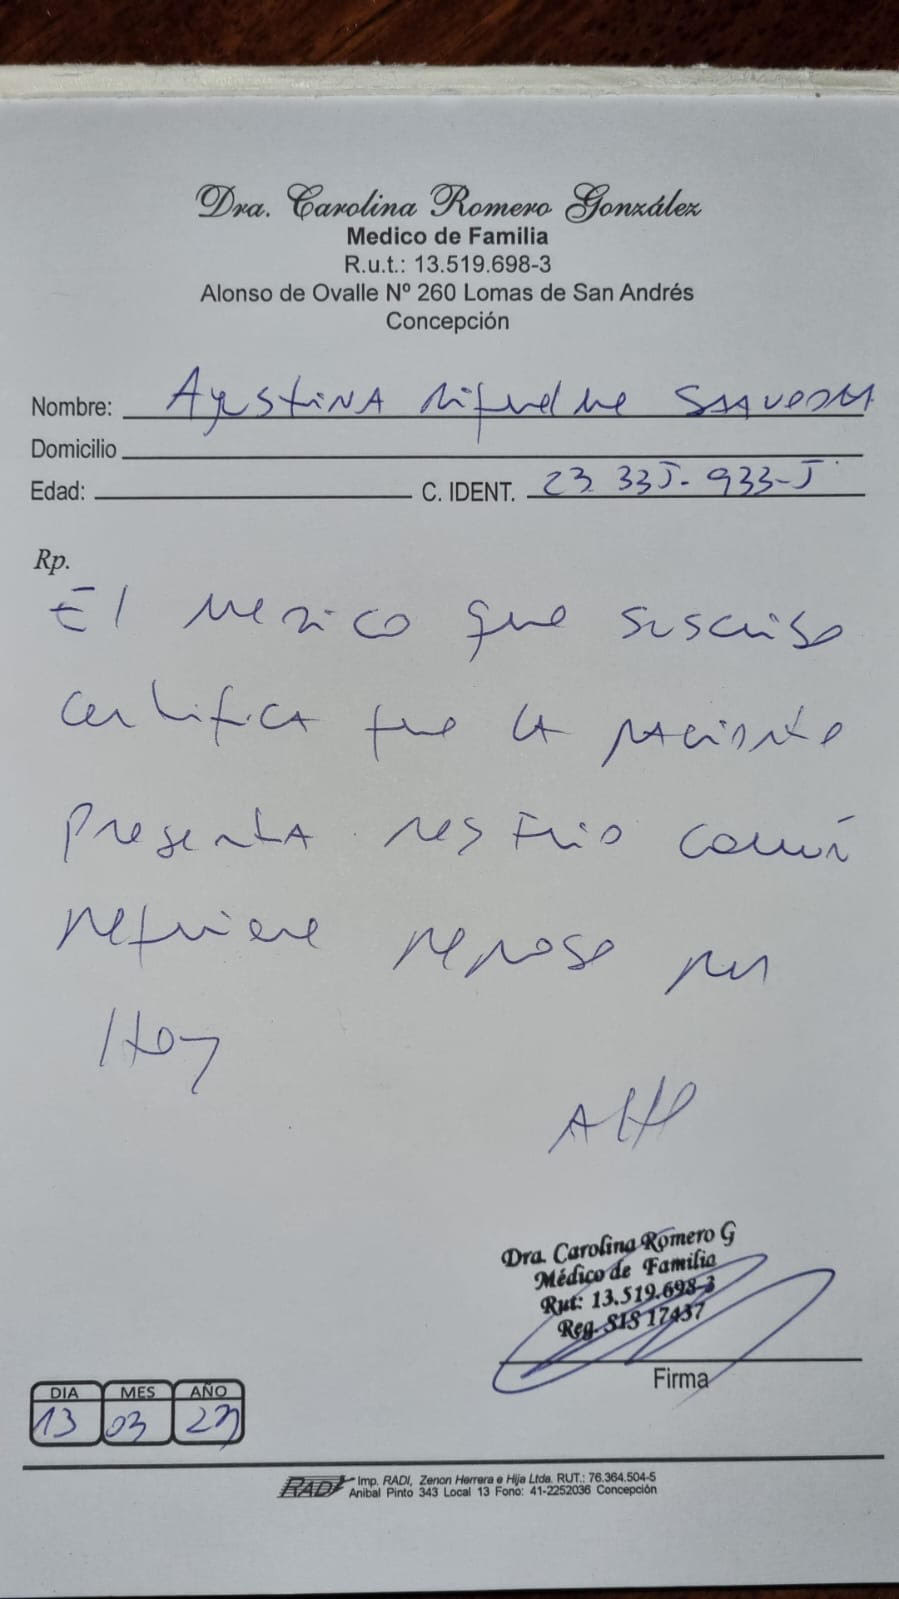 Dra. Carolina Romero González
Medico de Familia
R.u.t.: 13.519.698-3
Alonso de Ovalle Nº 260 Lomas de San Andrés
Concepción
Nombre: Agustina Saavedra
Domicilio
Edad: C. IDENT. 23.335-933-5
Rp.
El medico que suscribe
certifica que la paciente
presenta resfrio común
requiere reposo por
Hoy
Dra. Carolina Romero G
Médico de Familia
Rut: 13.519.698-3
Reg. SIS 17437
Firma
DIA MES AÑO
13 03 23
RADI Imp. RADI, Zenon Herrera e Hija Ltda. RUT.: 76.364.504-5
Anibal Pinto 343 Local 13 Fono: 41-2252036 Concepción